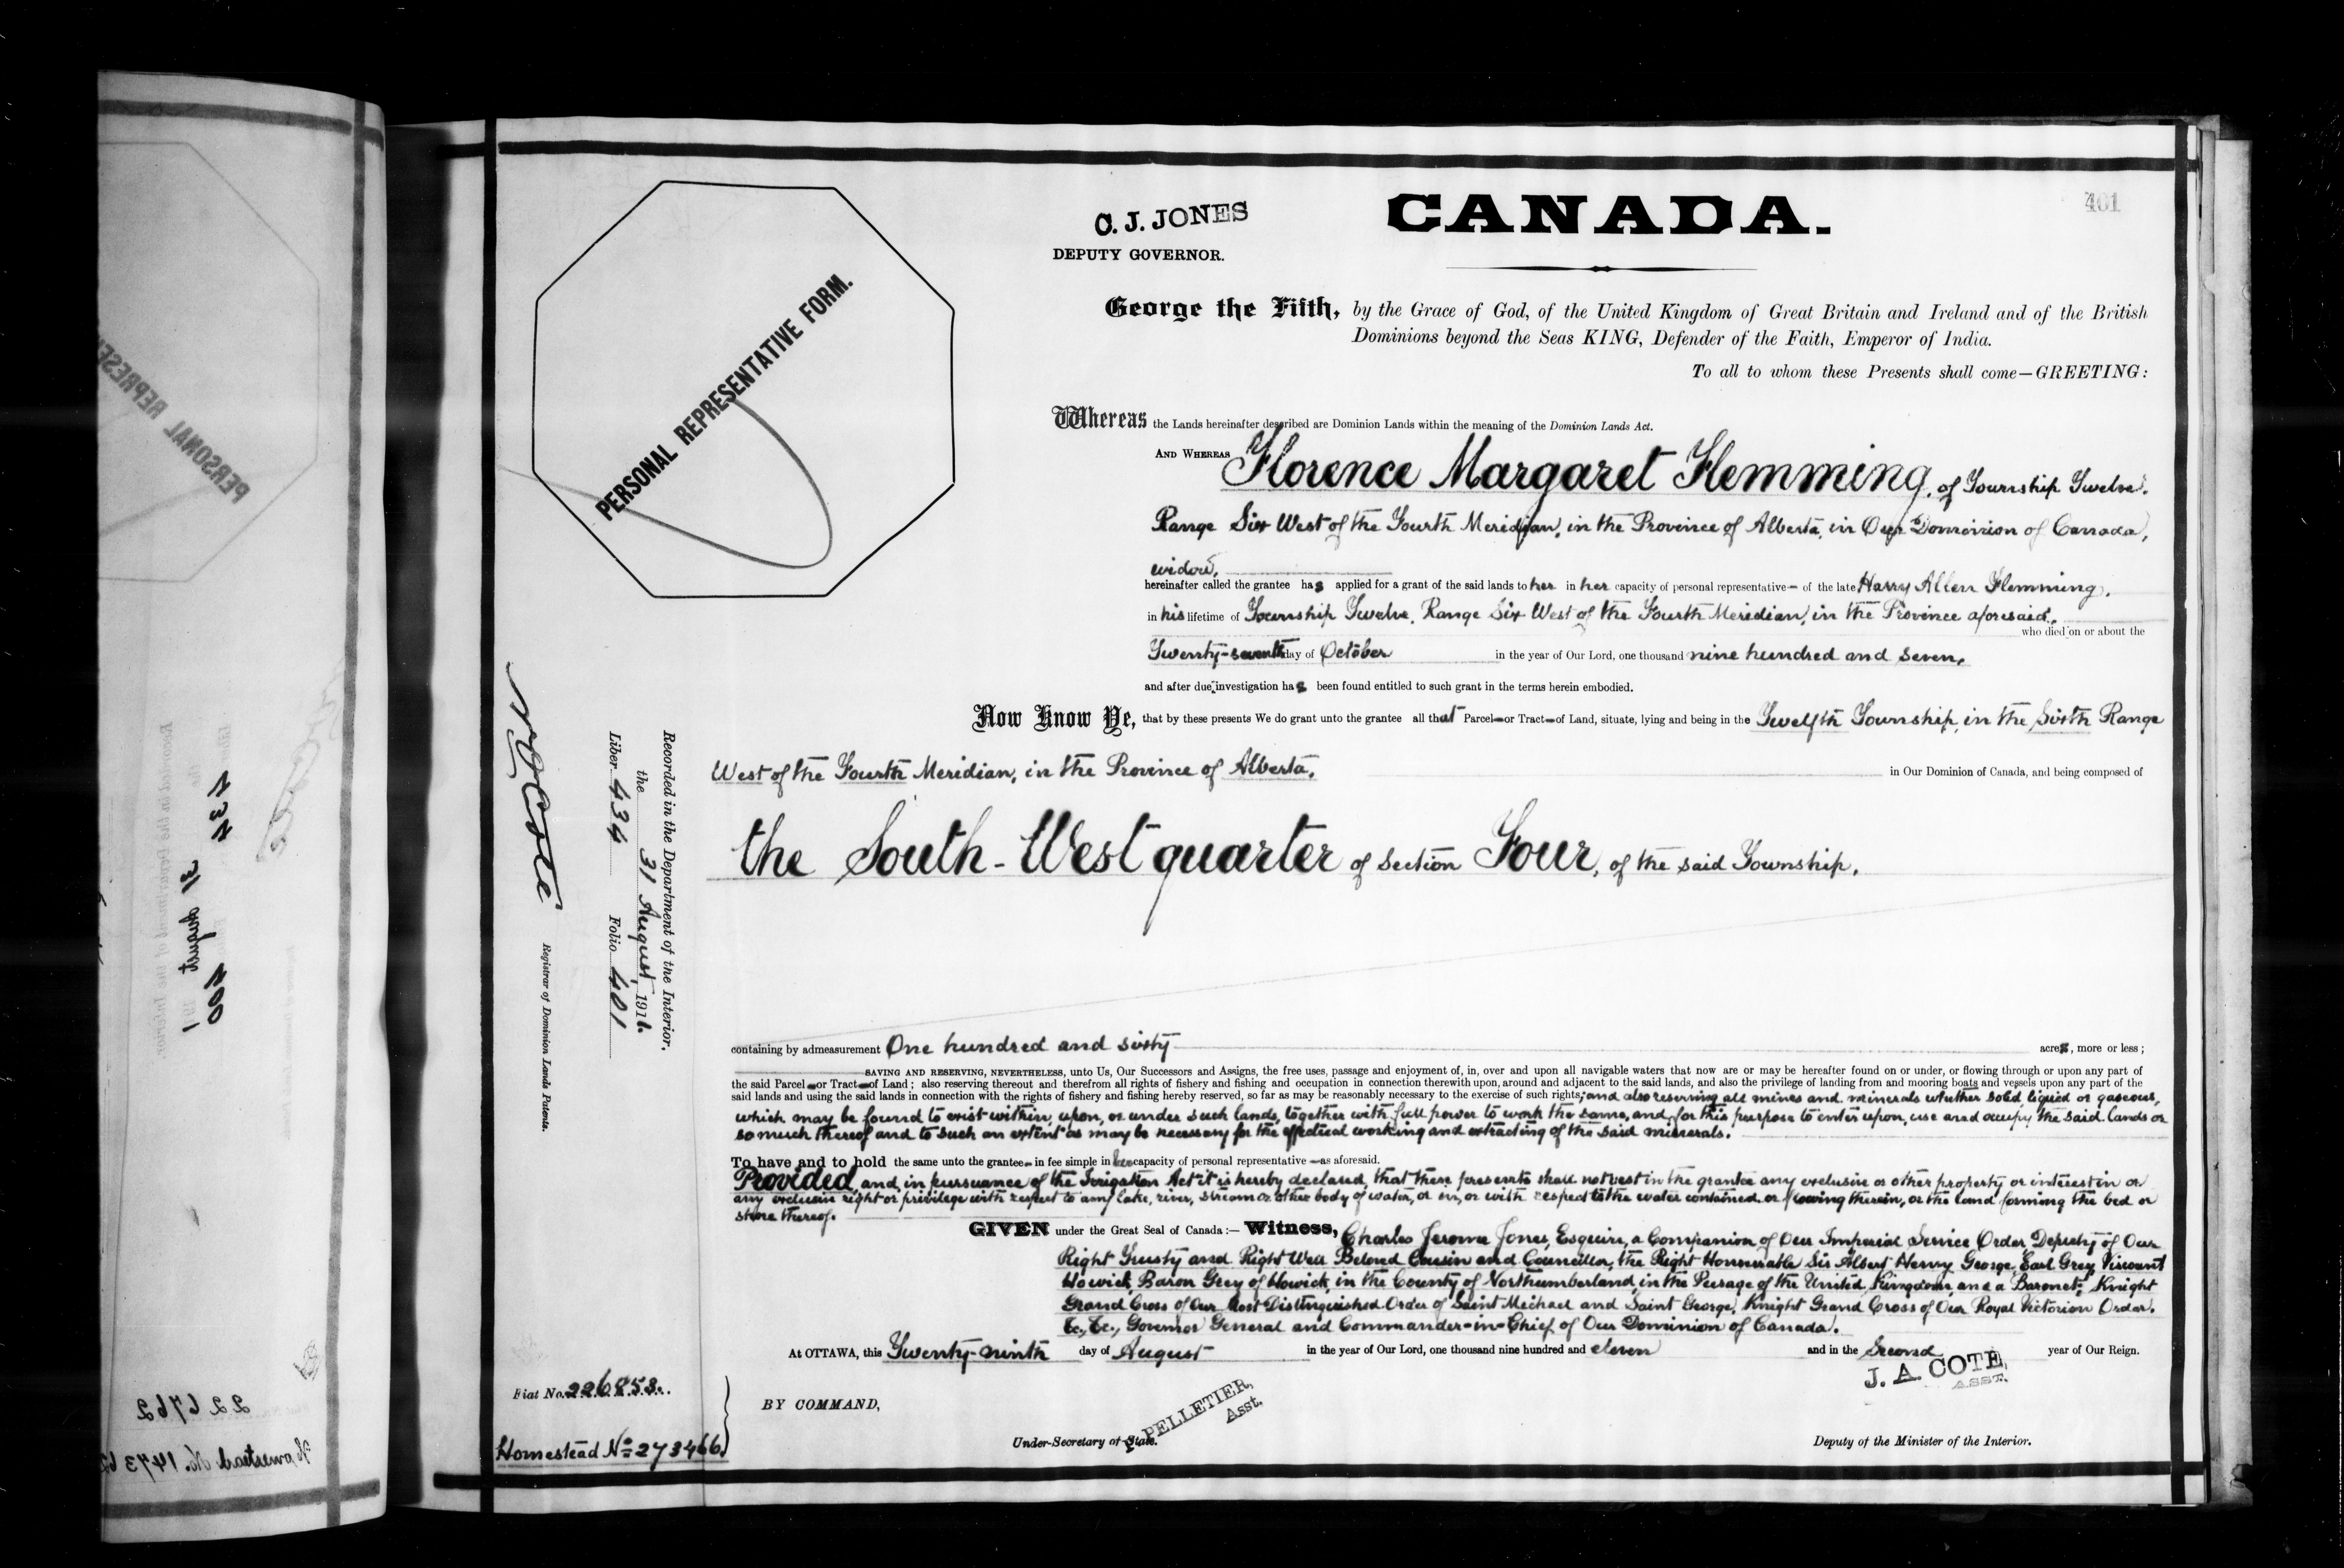 401
C. J. JONES
DEPUTY GOVERNOR.
CANADA.
PERSONAL REPRESENTATIVE FORM.
George the Fifth, by the Grace of God, of the United Kingdom of Great Britain and Ireland and of the British
Dominions beyond the Seas KING, Defender of the Faith, Emperor of India.
To all to whom these Presents shall come—GREETING:
Whereas the Lands hereinafter described are Dominion Lands within the meaning of the Dominion Lands Act.
AND WHEREAS Florence Margaret Flemming, of Township Twelve,
Range Six West of the Fourth Meridian, in the Province of Alberta, in Our Dominion of Canada,
widow,
hereinafter called the grantee has applied for a grant of the said lands to her in her capacity of personal representative— of the late Harry Allen Flemming,
in his lifetime of Township Twelve, Range Six West of the Fourth Meridian, in the Province aforesaid,
who died on or about the
Twenty-seventh day of October in the year of Our Lord, one thousand nine hundred and seven,
and after due investigation has been found entitled to such grant in the terms herein embodied.
Now Know Ye, that by these presents We do grant unto the grantee all that Parcel—or Tract—of Land, situate, lying and being in the Twelfth Township, in the Sixth Range
West of the Fourth Meridian, in the Province of Alberta, in Our Dominion of Canada, and being composed of
the South-West quarter of section Four, of the said Township,
containing by admeasurement One hundred and sixty acres, more or less;
SAVING AND RESERVING, NEVERTHELESS, unto Us, Our Successors and Assigns, the free uses, passage and enjoyment of, in, over and upon all navigable waters that now are or may be hereafter found on or under, or flowing through or upon any part of
the said Parcel—or Tract—of Land; also reserving thereout and therefrom all rights of fishery and fishing and occupation in connection therewith upon, around and adjacent to the said lands, and also the privilege of landing from and mooring boats and vessels upon any part of the
said lands and using the said lands in connection with the rights of fishery and fishing hereby reserved, so far as may be reasonably necessary to the exercise of such rights; and also reserving all mines and minerals whether solid, liquid or gaseous,
which may be found to exist within, upon, or under such lands, together with full power to work the same, and for this purpose to enter upon, use and occupy the said lands or
so much thereof and to such an extent as may be necessary for the effectual working and extracting of the said minerals.
To have and to hold the same unto the grantee—in fee simple in her capacity of personal representative—as aforesaid.
Provided, and in pursuance of the Irrigation Act it is hereby declared, that these presents shall not vest in the grantee any exclusive or other property or interest in or
any exclusive right or privilege with respect to any lake, river, stream or other body of water, or in, or with respect to the water contained or flowing therein, or the land forming the bed or
shore thereof.
GIVEN under the Great Seal of Canada:— Witness, Charles Jerome Jones, Esquire, a Companion of Our Imperial Service Order, Deputy of Our
Right Trusty and Right Well Beloved Cousin and Councillor, the Right Honourable Sir Albert Henry George, Earl Grey, Viscount
Howick, Baron Grey of Howick, in the County of Northumberland, in the Peerage of the United Kingdom, and a Baronet; Knight
Grand Cross of Our Most Distinguished Order of Saint Michael and Saint George, Knight Grand Cross of Our Royal Victorian Order,
&c., &c., Governor General and Commander-in-Chief of Our Dominion of Canada.
At OTTAWA, this Twenty-ninth day of August in the year of Our Lord, one thousand nine hundred and eleven and in the Second year of Our Reign.
BY COMMAND,
PELLETIER,
Asst.
Under-Secretary of State.
J. A. COTE,
ASST.
Deputy of the Minister of the Interior.
Recorded in the Department of the Interior,
the 31 August, 1911.
Liber 434 Folio 401
N O Coté
Registrar of Dominion Lands Patents.
Fiat No. 226853.
Homestead No 273466
PERSONAL REPRESE
434
31 August 191
400
226762
Homestead No. 14736